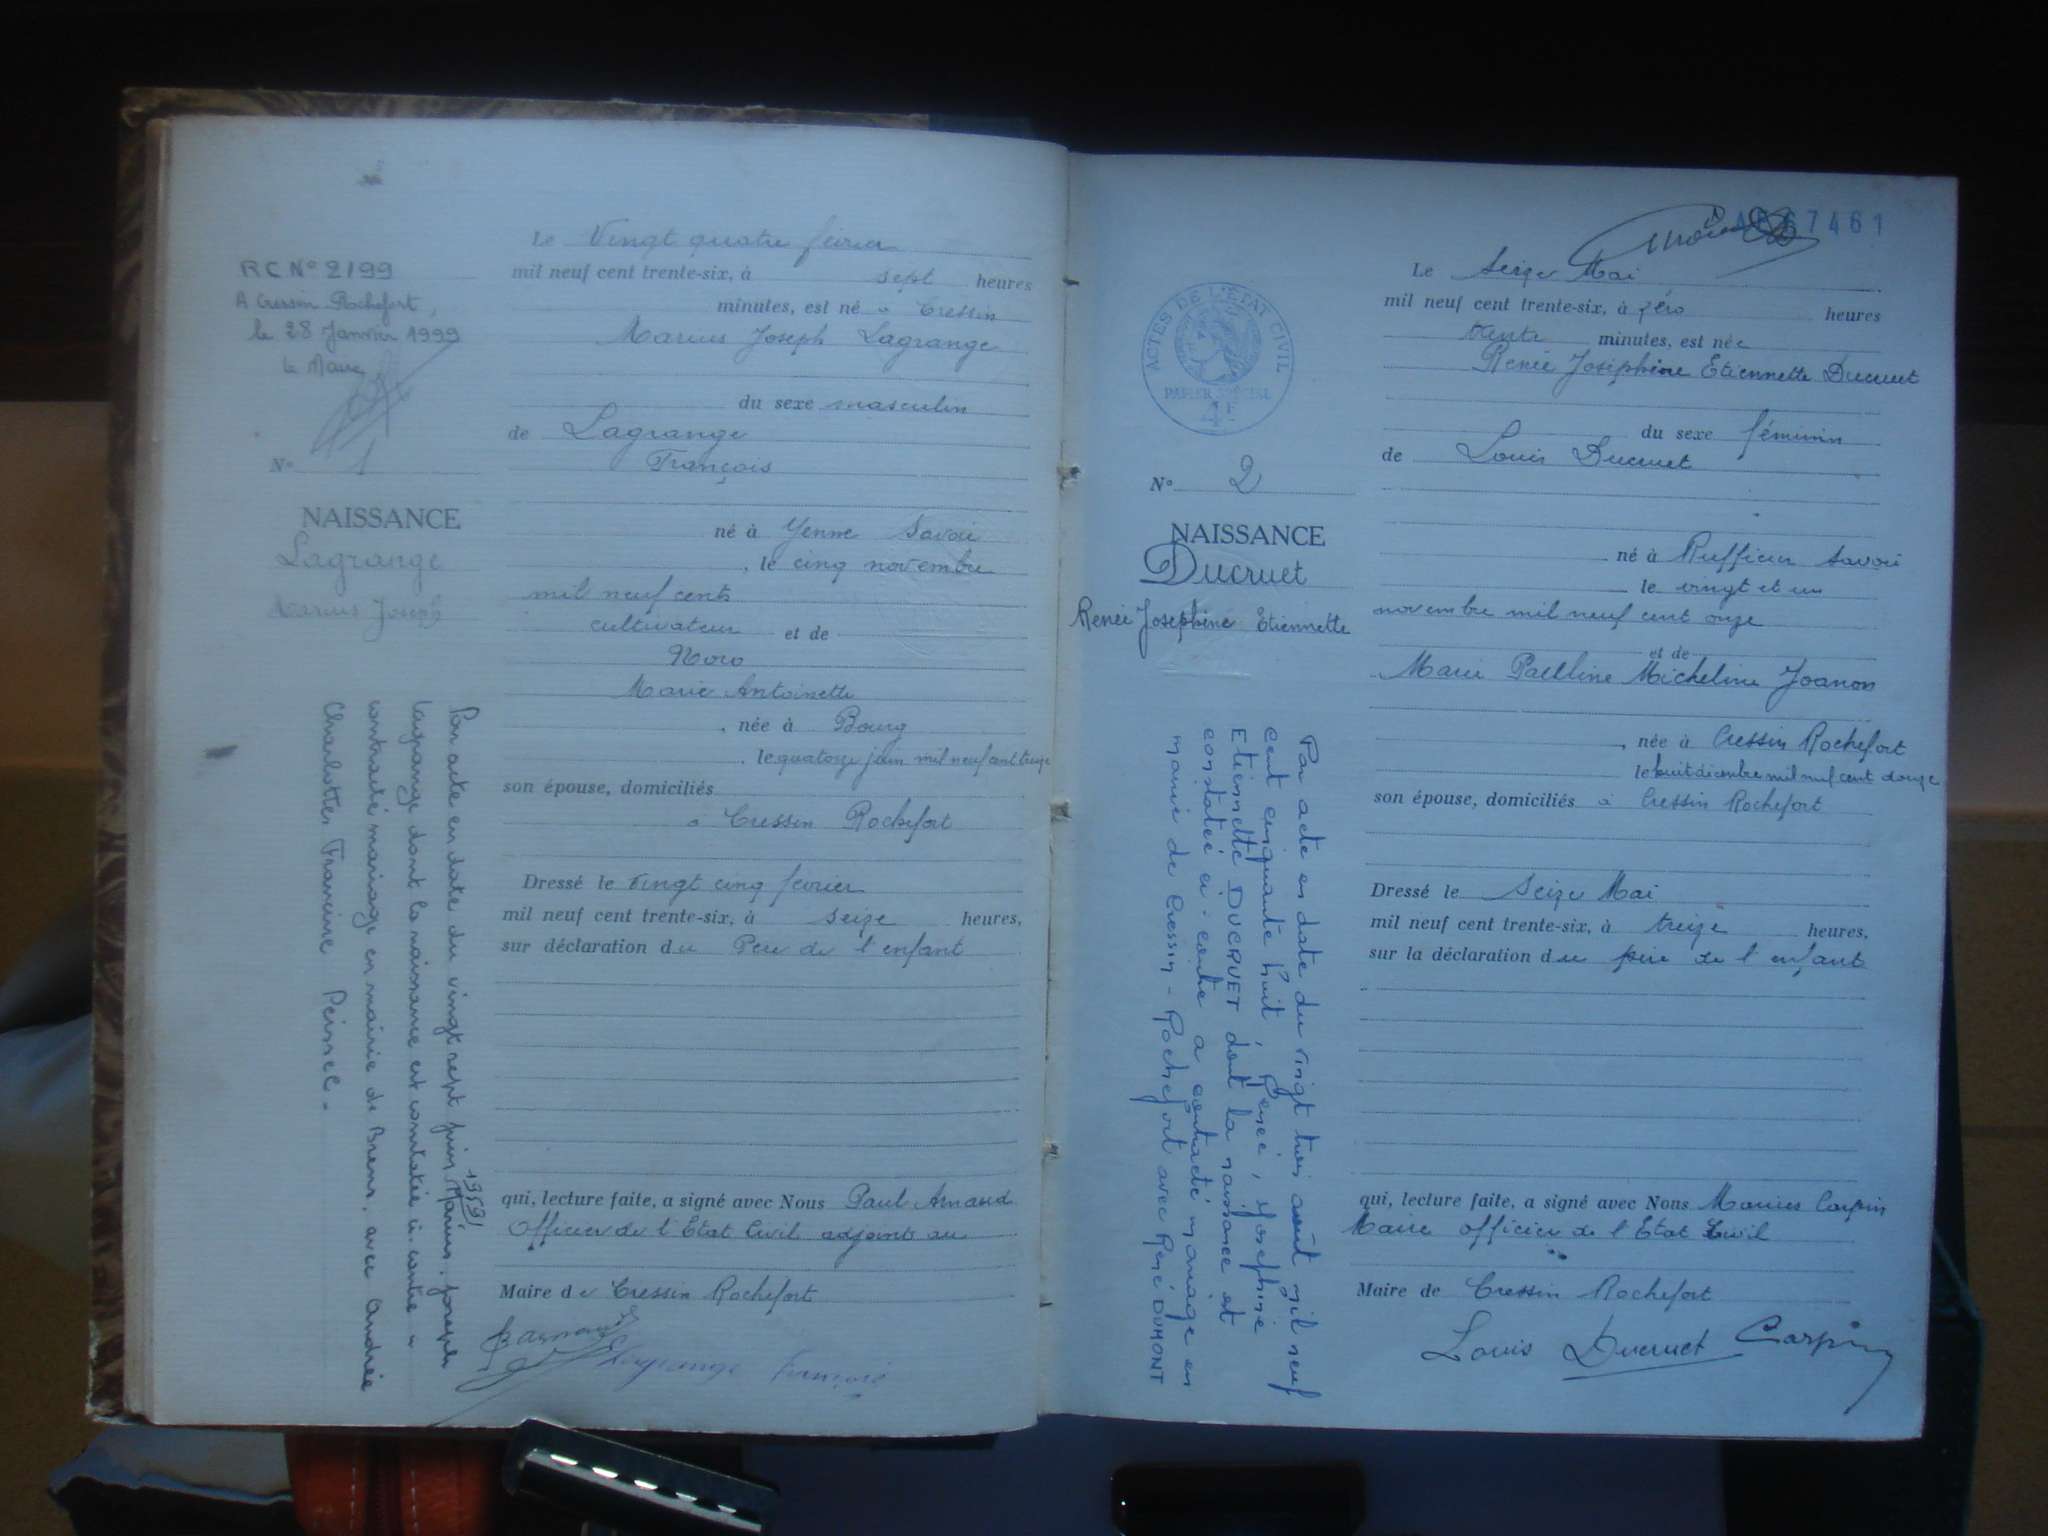 RC N° 2/99
A Cressin Rochefort,
le 28 Janvier 1999
le Maire
N° 1
NAISSANCE
Lagrange
Marius Joseph
Par acte en date du vingt sept juin 1959 Marius, Joseph
Lagrange dont la naissance est constatée ci-contre a
contracté mariage en mairie de Brens, avec Andrée
Charlotte Francine Peissel.
Le Vingt quatre février
mil neuf cent trente-six, à sept heures
minutes, est né à Cressin
Marius Joseph Lagrange
du sexe masculin
de Lagrange
François
né à Yenne Savoie
, le cinq novembre
mil neuf cents
cultivateur et de
Moro
Marie Antoinette
, née à Bourg
, le quatorze juin mil neuf cent treize
son épouse, domiciliés
à Cressin Rochefort
Dressé le vingt cinq février
mil neuf cent trente-six, à seize heures,
sur déclaration du Père de l'enfant
qui, lecture faite, a signé avec Nous Paul Arnaud
Officier de l'Etat Civil adjoint au
Maire de Cressin Rochefort
Lagrange François
67461
ACTES DE L'ÉTAT CIVIL
PAPIER SPÉCIAL
N° 2
NAISSANCE
Ducruet
Renée Joséphine Etiennette
Par acte en date du vingt trois août mil neuf
cent cinquante huit, Renée, Joséphine
Etiennette DUCRUET dont la naissance est
constatée ci-contre a contracté mariage en
mairie de Cressin-Rochefort avec René DUMONT
Le Seize Mai
mil neuf cent trente-six, à zéro heures
trente minutes, est née
Renée Joséphine Etiennette Ducruet
du sexe féminin
de Louis Ducruet
né à Ruffieux Savoie
le vingt et un
novembre mil neuf cent onze
et de
Marie Paulline Micheline Joanon
, née à Cressin Rochefort
le huit décembre mil neuf cent douze
son épouse, domiciliés à Cressin Rochefort
Dressé le Seize Mai
mil neuf cent trente-six, à treize heures,
sur la déclaration du père de l'enfant
qui, lecture faite, a signé avec Nous Marius Carpin
Maire officier de l'Etat Civil
Maire de Cressin Rochefort
Louis Ducruet Carpin